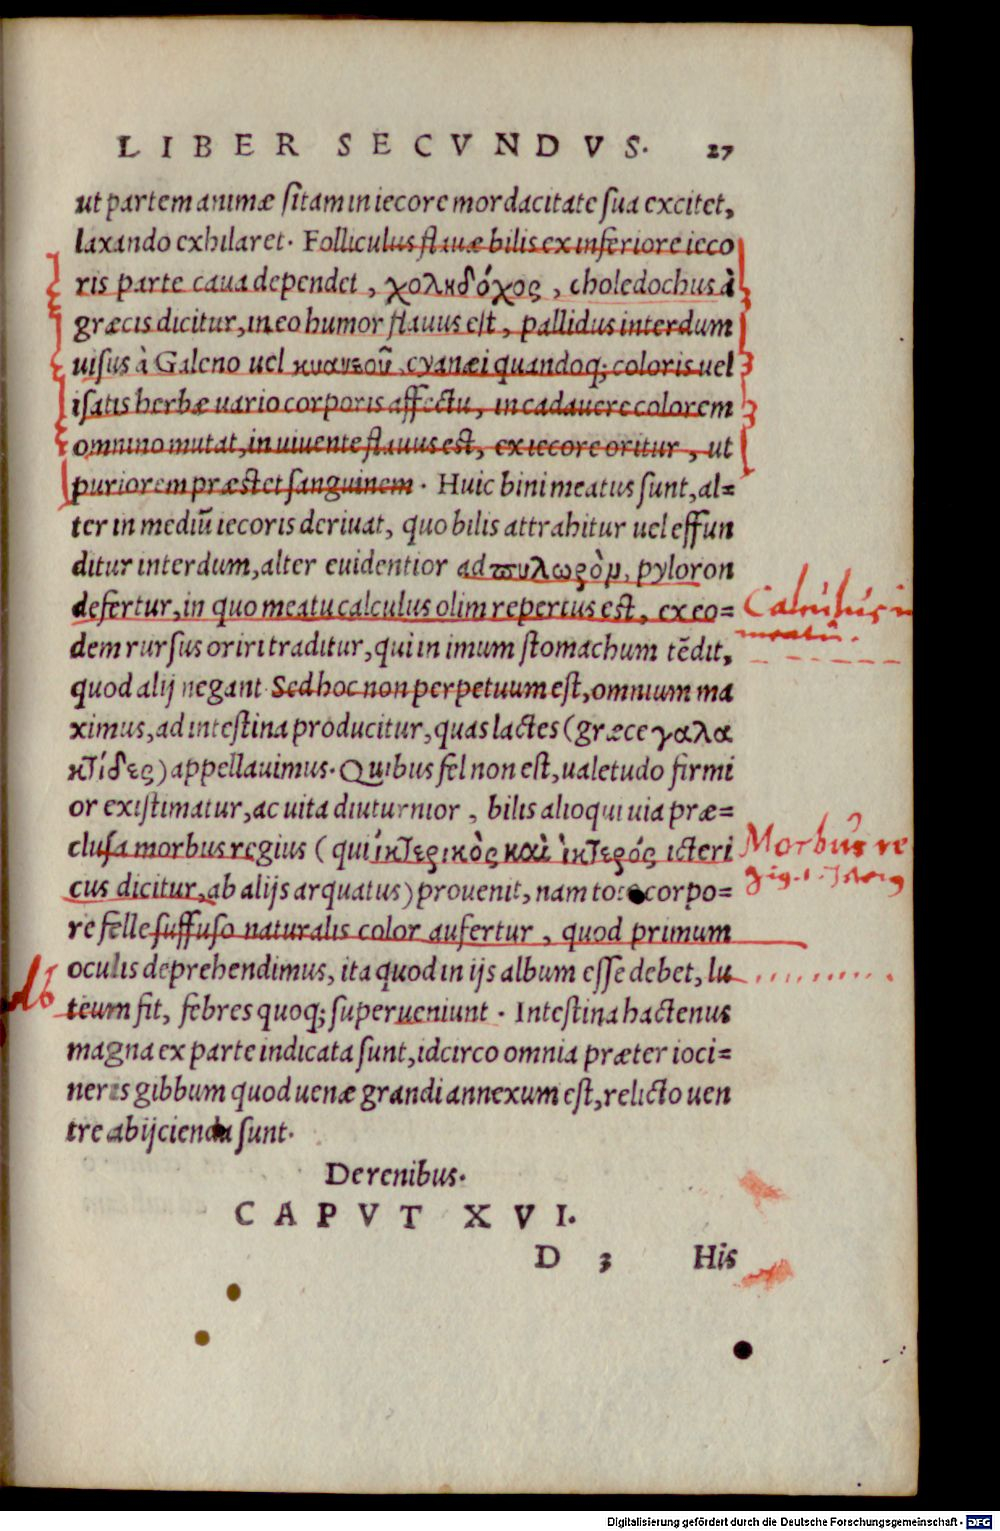 LIBER SECVNDVS. 27
ut partem animæ sitam in iecore mordacitate sua excitet,
laxando exhilaret. Folliculus flauæ bilis ex inferiore ieco
ris parte caua dependet, χοληδόχος, choledochus à
græcis dicitur, in eo humor flauus est, pallidus interdum
uisus à Galeno uel κυανεοῦ, cyanæi quandoq; coloris uel
isatis herbæ uario corporis affectu, in cadauere colorem
omnino mutat, in uiuente flauus est, ex iecore oritur, ut
puriorem præstet sanguinem. Huic bini meatus sunt, al=
ter in mediũ iecoris deriuat, quo bilis attrahitur uel effun
ditur interdum, alter euidentior ad πυλωρὸμ, pyloron
defertur, in quo meatu calculus olim repertus est, ex eo=
dem rursus oriri traditur, qui in imum stomachum tẽdit,
quod alij negant. Sed hoc non perpetuum est, omnium ma
ximus, ad intestina producitur, quas lactes (græce γαλα
κτίδες) appellauimus. Quibus fel non est, ualetudo firmi
or existimatur, ac uita diuturnior, bilis alioqui uia præ=
clusa morbus regius (qui ἰκτερικὸς καὶ ἰκτερός icteri
cus dicitur, ab alijs arquatus) prouenit, nam toto corpo=
re felle suffuso naturalis color aufertur, quod primum
oculis deprehendimus, ita quod in ijs album esse debet, lu
teum fit, febres quoq; superueniunt. Intestina hactenus
magna ex parte indicata sunt, idcirco omnia præter ioci=
neris gibbum quod uenæ grandi annexum est, relicto uen
tre abijcienda sunt.
De renibus.
CAPVT XVI.
D 3 His
Calculus in
meatu.
Morbus re
Digitalisierung gefördert durch die Deutsche Forschungsgemeinschaft - DFG